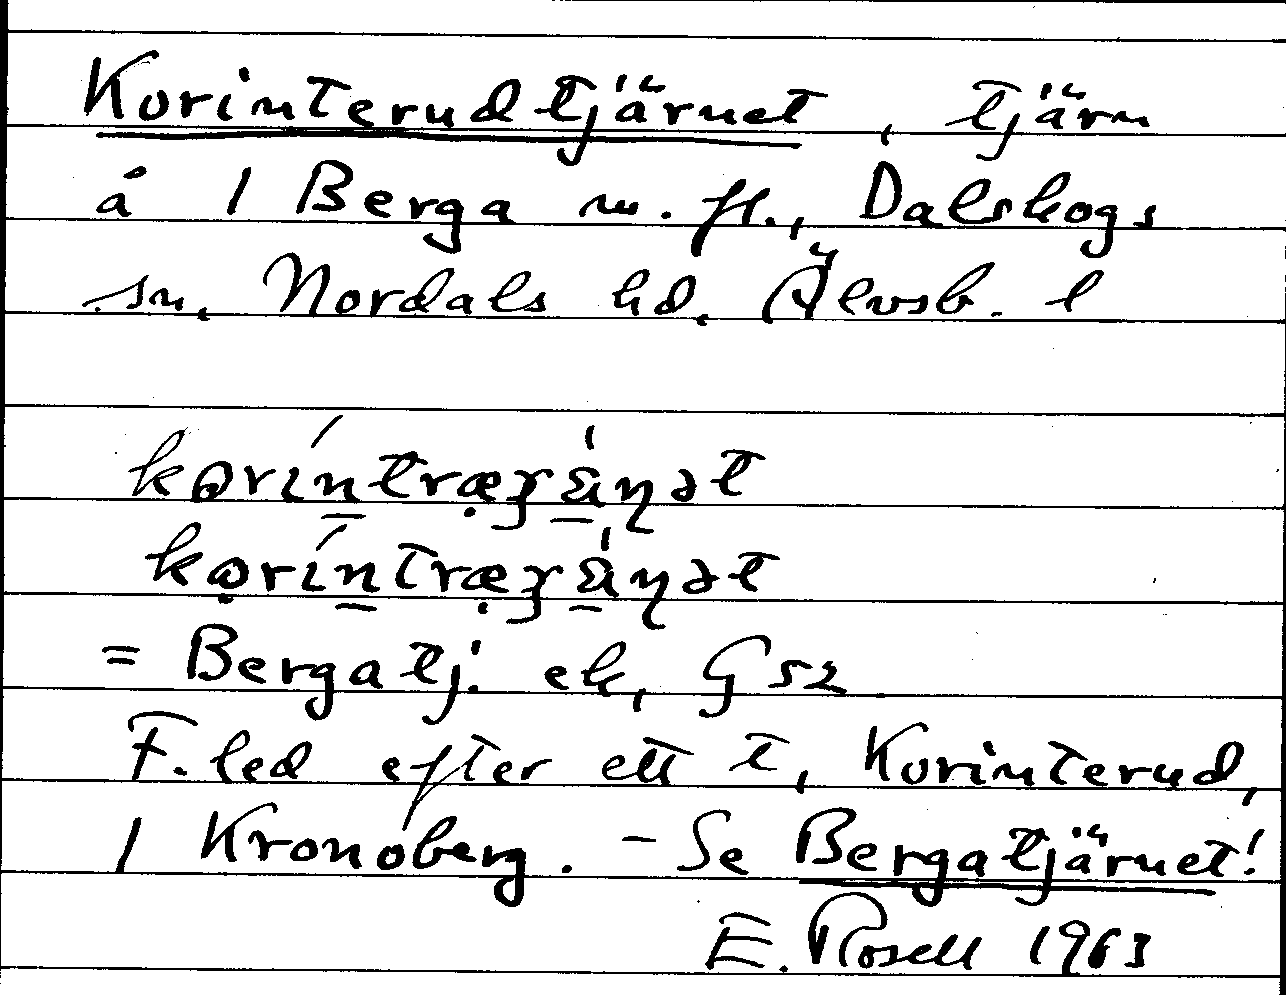 Korinterudtjärnet, tjärn
å 1 Berga m. fl., Dalskogs
sn, Nordals hd, Älvsb. l
= Berga tj. ek, G 52
F. led efter ett t, Korinterud,
1 Kronoberg. - Se Bergatjärnet!
E. Rosell 1963